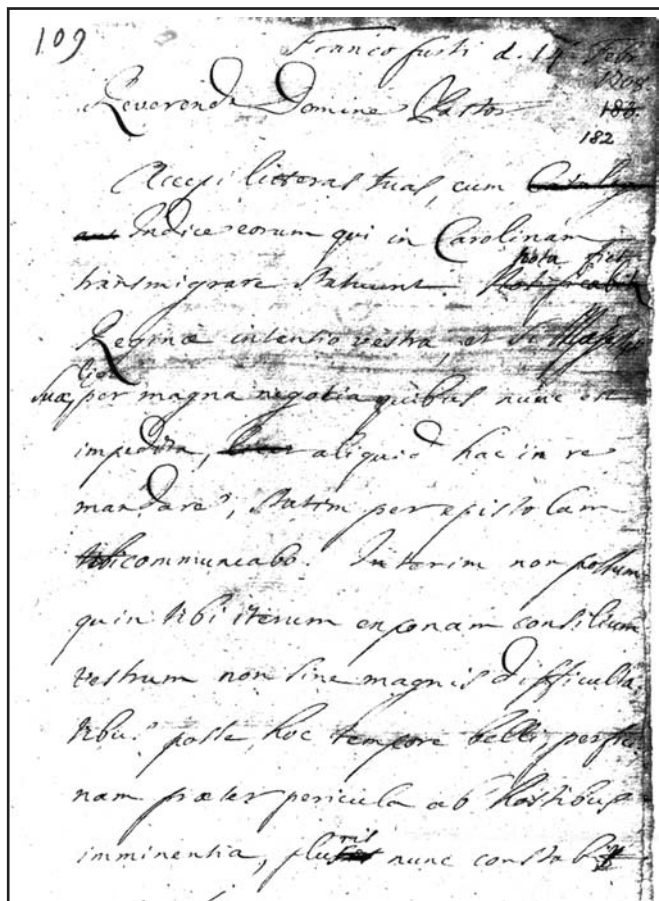 109
Francofurti d. 14 Febr
1708.
183.
182
Reverende Domine Pastor
Accepi litteras tuas, cum
aut Indice eorum qui in Carolinam
transmigrare statuunt. Nota fiet
Reginæ intentio vestra, et si Majes
Suæ per magna negotia quibus nunc est
impedita, aliquid hac in re
mandare, statim per epistolam
tibi communcabo. Interim non possum
quin tibi iterum exponam consilium
vestrum non sine magnis difficulta
tibus posse, hoc tempore belli, perfici
nam præter pericula ab hostibus
imminentia, pluris nunc constabit